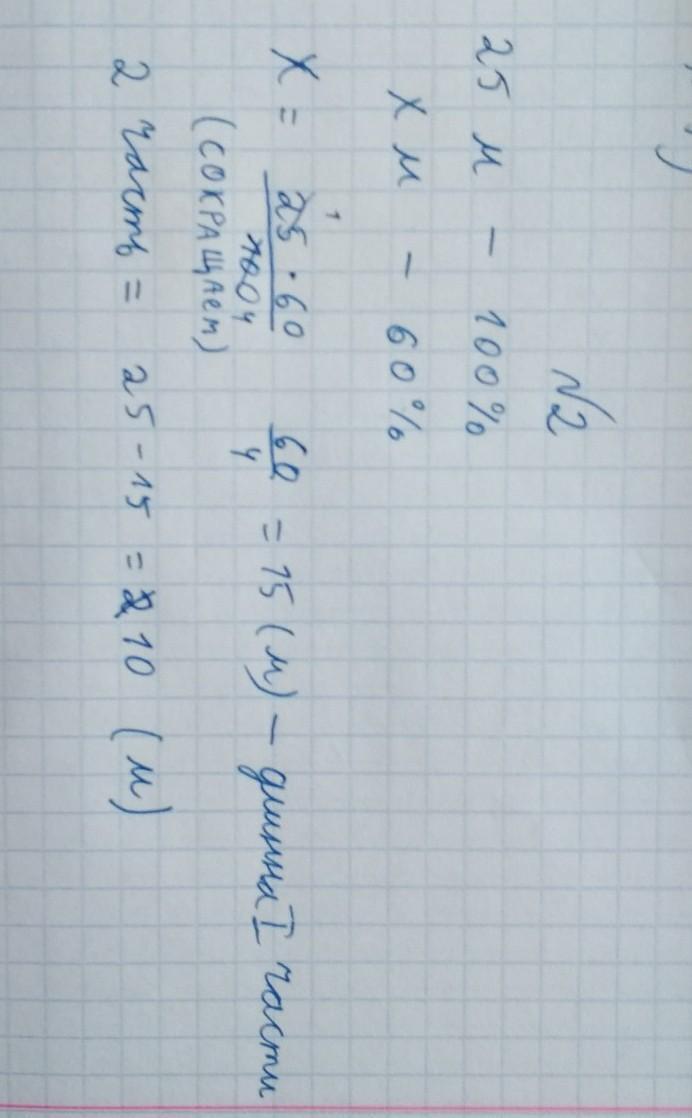 №2
25 м - 100%
х м - 60%
х = 25¹ · 60 / 100 4 60 / 4 = 15 (м) - длинна I части
(СОКРАЩАЕМ)
2 часть = 25 - 15 = 10 (м)